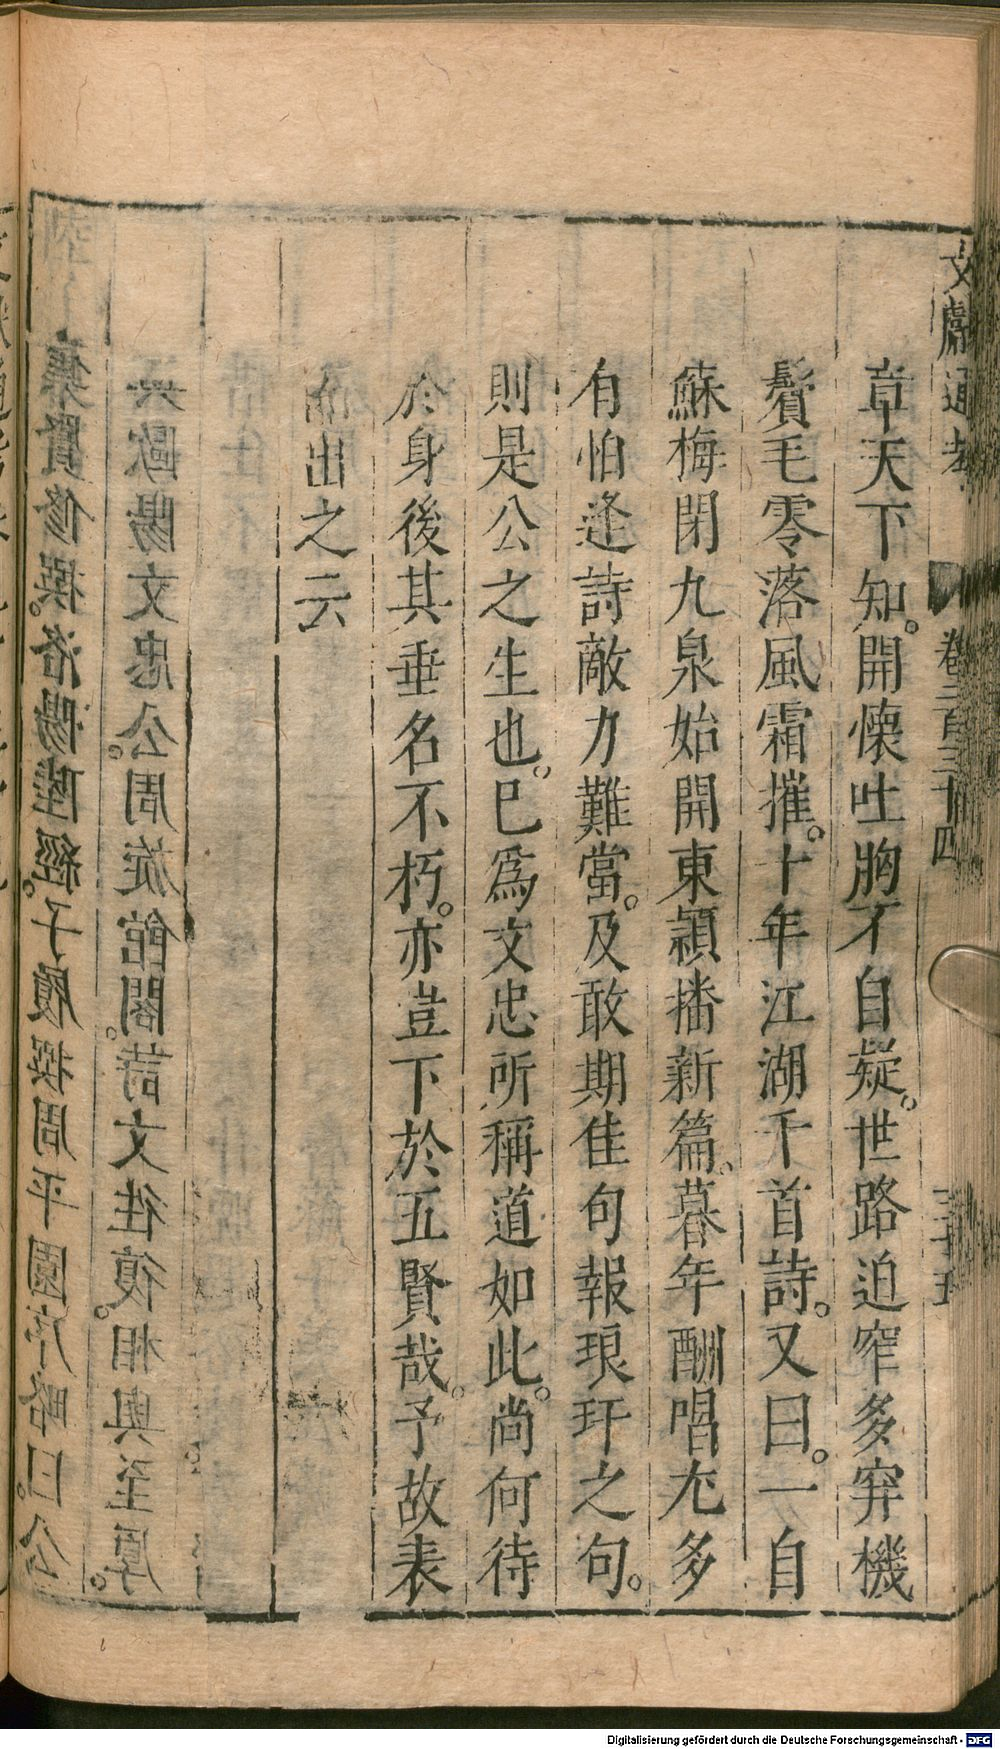 文獻通考 卷二百三十四 三十五
章天下知。開懷吐胸不自疑。世路迫窄多穽機
鬢毛零落風霜摧。十年江湖千首詩。又曰。一自
蘇梅閉九泉始開東潁播新篇。暮年酬唱尤多
有怕逢詩敵力難當。及敢期佳句報琅玕之句。
則是公之生也。已為文忠所稱道如此。尚何待
於身後其垂名不朽。亦豈下於五賢哉。予故表
而出之云
集賢修撰。洛陽陸經。子履撰周平園序略曰。公
共歐陽文忠公。周旋館閣。詩文往復。相與至厚。
Digitalisierung gefördert durch die Deutsche Forschungsgemeinschaft - DFG